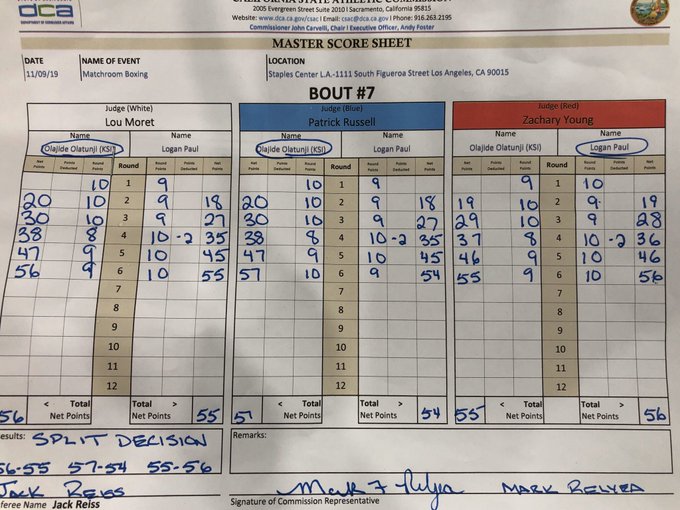 CALIFORNIA STATE ATHLETIC COMMISSION
dca 2005 Evergreen Street Suite 2010 l Sacramento, California 95815
DEPARTMENT OF CONSUMER AFFAIRS Website: www.dca.ca.gov/csac l Email: csac@dca.ca.gov l Phone: 916.263.2195
Commissioner John Carvelli, Chair l Executive Officer, Andy Foster
MASTER SCORE SHEET
DATE NAME OF EVENT LOCATION
11/09/19 Matchroom Boxing Staples Center L.A.-1111 South Figueroa Street Los Angeles, CA 90015
BOUT #7
Judge (White) Judge (Blue) Judge (Red)
Lou Moret Patrick Russell Zachary Young
Name Name Name Name Name Name
Olajide Olatunji (KSI) Logan Paul Olajide Olatunji (KSI) Logan Paul Olajide Olatunji (KSI) Logan Paul
Net Points Points Deducted Round Points Round Round Points Points Deducted Net Points Net Points Points Deducted Round Points Round Round Points Points Deducted Net Points Net Points Points Deducted Round Points Round Round Points Points Deducted Net Points
10 1 9 10 1 9 9 1 10
20 10 2 9 18 20 10 2 9 18 19 10 2 9 19
30 10 3 9 27 30 10 3 9 27 29 10 3 9 28
38 8 4 10 -2 35 38 8 4 10 -2 35 37 8 4 10 -2 36
47 9 5 10 45 47 9 5 10 45 46 9 5 10 46
56 9 6 10 55 57 10 6 9 54 55 9 6 10 56
7 7 7
8 8 8
9 9 9
10 10 10
11 11 11
12 12 12
< Total Total > < Total Total > < Total Total >
56 Net Points Net Points 55 57 Net Points Net Points 54 55 Net Points Net Points 56
esults: SPLIT DECISION Remarks:
56-55 57-54 55-56
JACK REISS Mark F Relyea MARK RELYEA
feree Name Jack Reiss Signature of Commission Representative